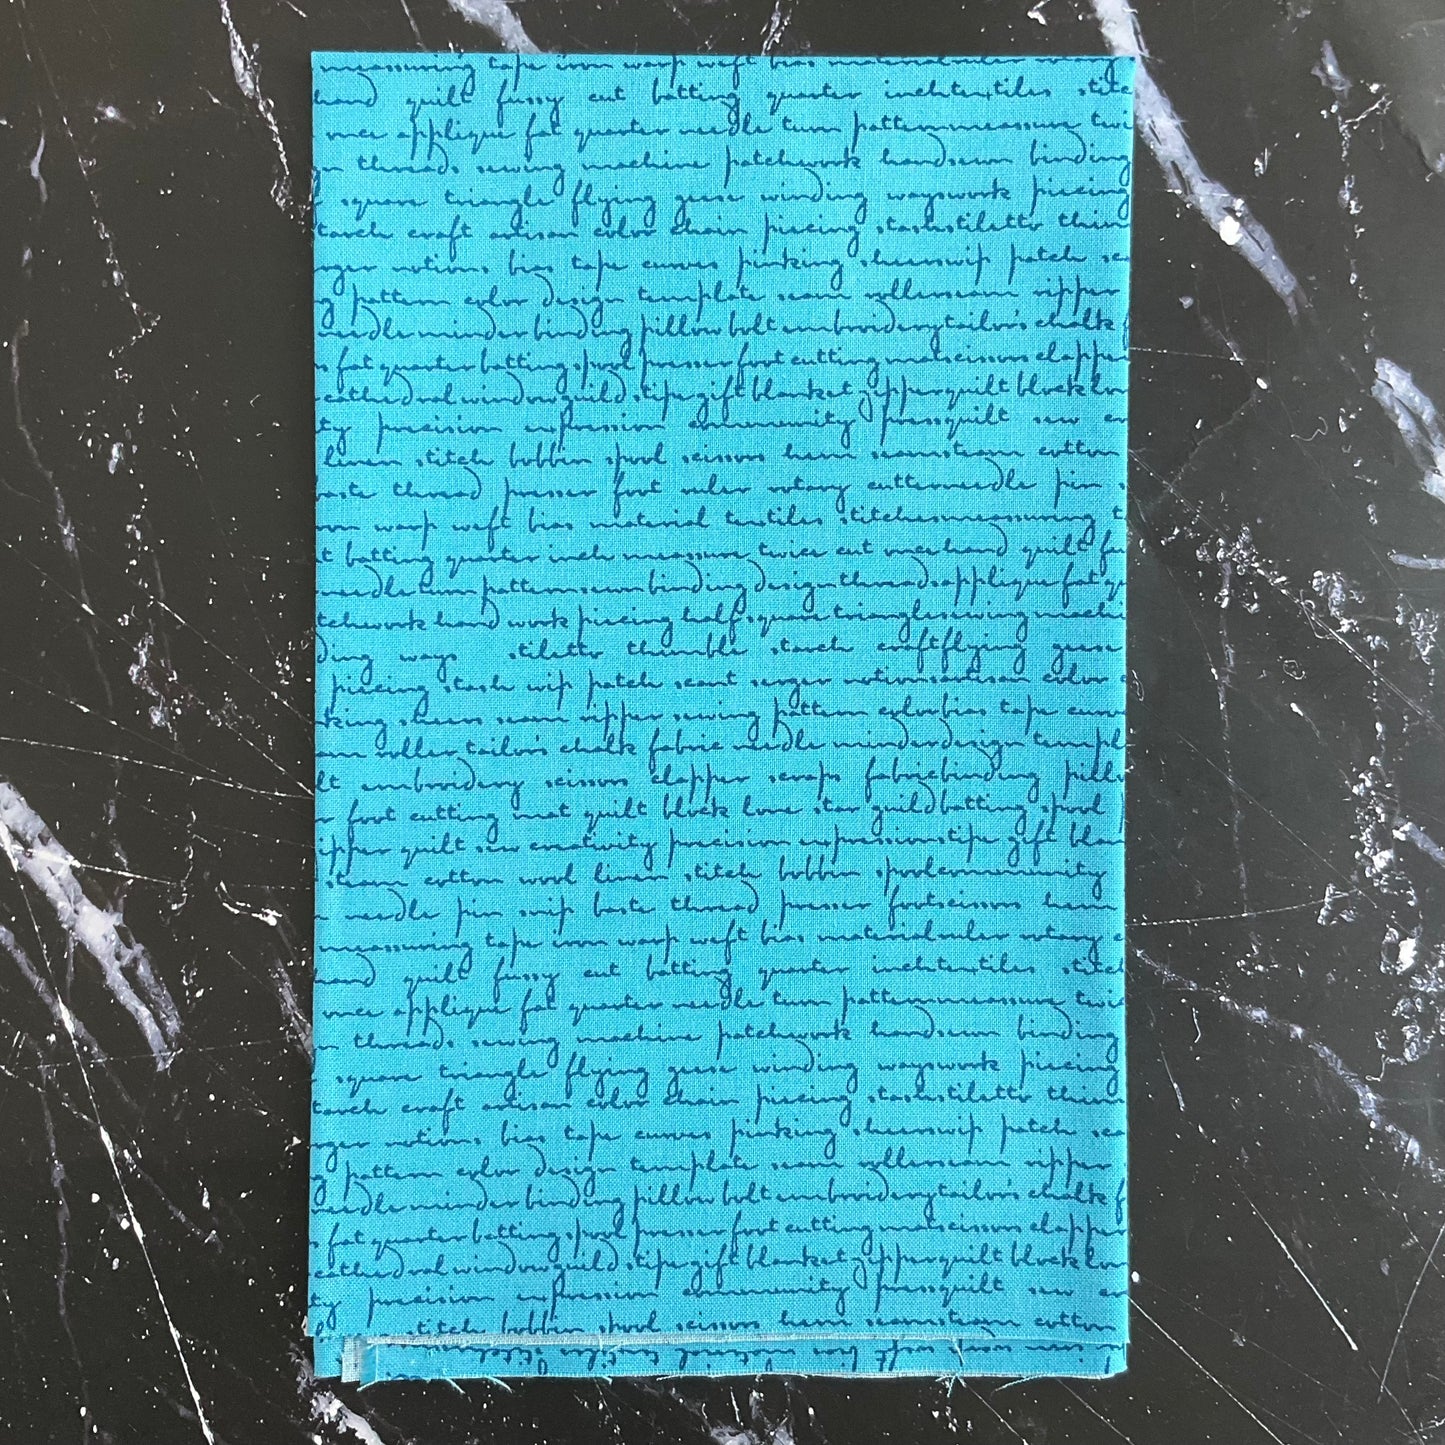 measuring tape iron warp weft bias material ruler rotary
hand quilt fussy cut batting quarter inch textiles stitc
once applique fat quarter needle turn pattern measure twi
gn threads sewing machine patchwork hand sewn binding
f square triangle flying geese winding ways work piecing
tarch craft artisan color chain piecing stash stiletto thim
rger notions bias tape curves pinking shears wip patch sc
g pattern color design template seam roller seam ripper
needle minder binding pillow bolt embroidery tailor's chalk f
s fat quarter batting spool presser foot cutting mat scissors clapper
cathedral window guild stipe gift blanket zipper quilt block lov
ty precision expression community press quilt sew cr
linen stitch bobbin spool scissors hem seam steam cotton
aste thread presser foot ruler rotary cutter needle pin s
ron warp weft bias material textiles stitches measuring t
t batting quarter inch measure twice cut once hand quilt fu
needle turn pattern sewn binding design threads applique fat qu
tchwork hand work piecing half square triangle sewing machi
ding ways stiletto thimble starch craft flying geese
piecing stash wip patch scant serger notions artisan color c
king shears seam ripper sewing pattern color bias tape curv
am roller tailor's chalk fabric needle minder design templ
lt embroidery scissors clapper scraps fabric binding pillo
r foot cutting mat quilt block lone star guild batting spool p
ipper quilt sew creativity precision expression stipe gift blan
steam cotton wool linen stitch bobbin spool community
needle pin snip baste thread presser foot scissors hem
measuring tape iron warp weft bias material ruler rotary c
hand quilt fussy cut batting quarter inch textiles stitch
once applique fat quarter needle turn pattern measure twic
n threads sewing machine patchwork hand sewn binding
square triangle flying geese winding ways work piecing
tarch craft artisan color chain piecing stash stiletto thim
rger notions bias tape curves pinking shears wip patch sca
g pattern color design template seam roller seam ripper
needle minder binding pillow bolt embroidery tailor's chalk f
s fat quarter batting spool presser foot cutting mat scissors clapper
cathedral window guild stipe gift blanket zipper quilt block lov
ty precision expression community press quilt sew cr
stitch bobbin spool scissors hem seam steam cotton
iron warp weft bias material textiles stitches